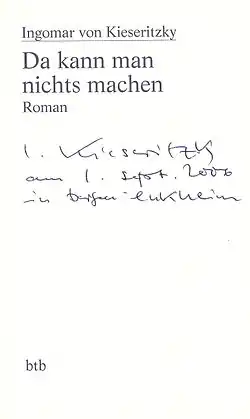 Ingomar von Kieseritzky
Da kann man
nichts machen
Roman
I. Kieseritzky
am 1. Sept. 2006
in Bergen-Enkheim
btb